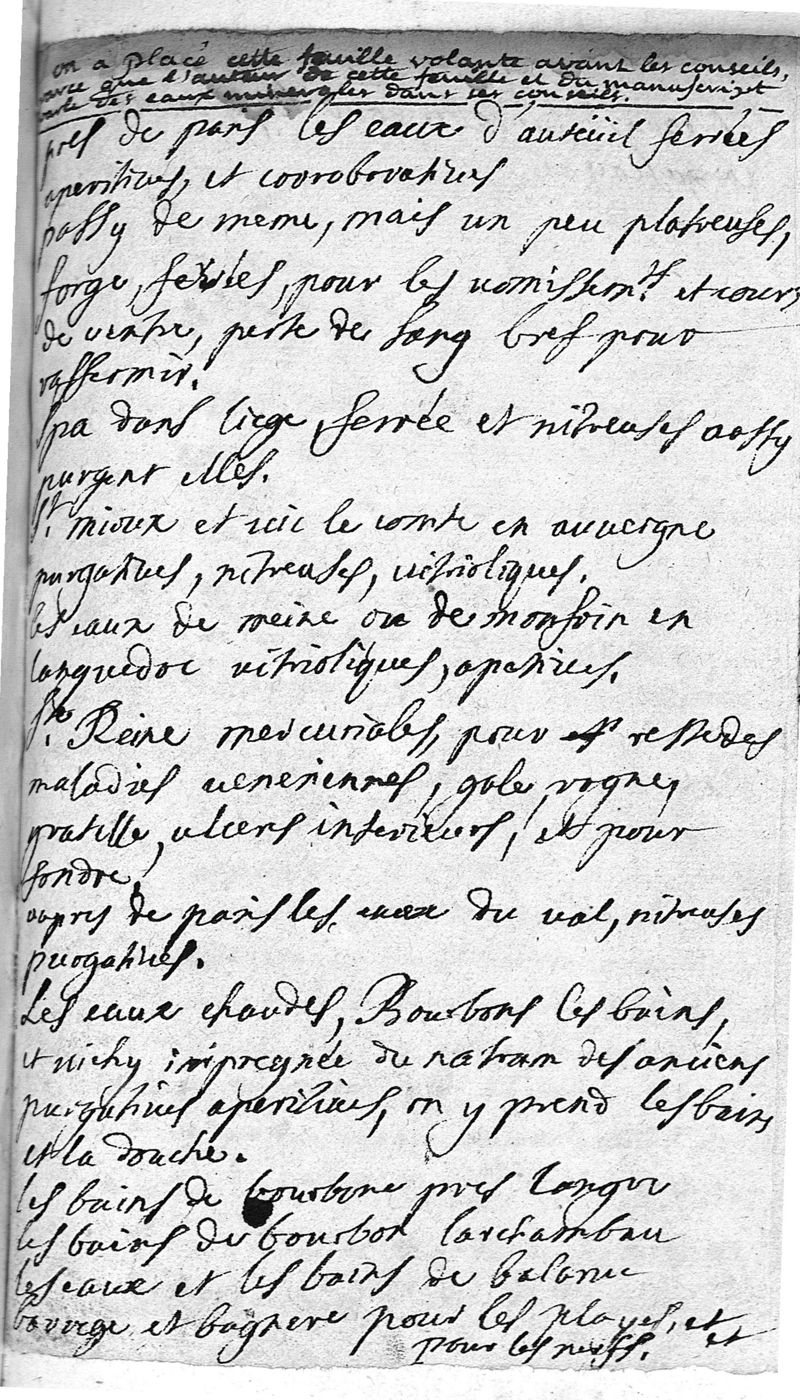 on a placé cette feuille volante avant les conseils,
parce que l'auteur de cette feuille et du manuscript
parle des eaux minerales dans ses conseils.
pres de paris les eaux d'auteüil ferrées
aperitives, et corroboratives
passy de meme, mais un peu platreuses,
forge, ferrées, pour les vomissem.ts et cours
de ventre, perte de sang bref pour
raffermir.
spa dans liege, ferrée et nitreuses aossy
purgent elles.
St. mioux et vic le comte en auvergne
purgatives, nitreuses, vitrioliques.
les eaux de meine ou de monfrin en
languedoc vitrioliques, aperitives.
Ste. Reine mercuriales, pour restedes
maladies veneriennes, gale, rogne,
gratelle, ulcers interieurs, et pour
fondre,
aupres de paris les eaux du val, nitreuses
purgatives.
Les eaux chaudes, Bourbons les bains,
et vichy impregnée du natrum des anciens
purgatives aperitives, on y prend les bains
et la douche.
les bains de bourbone pres langre
les bains de bourbon larchambau
les eaux et les bains de balaruc
barege et bagnere pour les playes, et
et pour les nerfs.